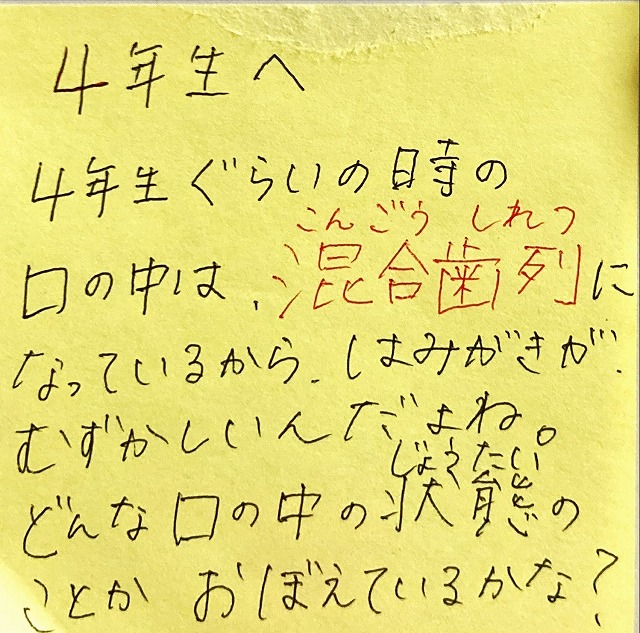 4年生へ
4年生ぐらいの時の
こんごう しれつ
口の中は、混合歯列に
なっているから、はみがきが、
むずかしいんだよね。
じょうたい
どんな口の中の状態の
ことか おぼえているかな?